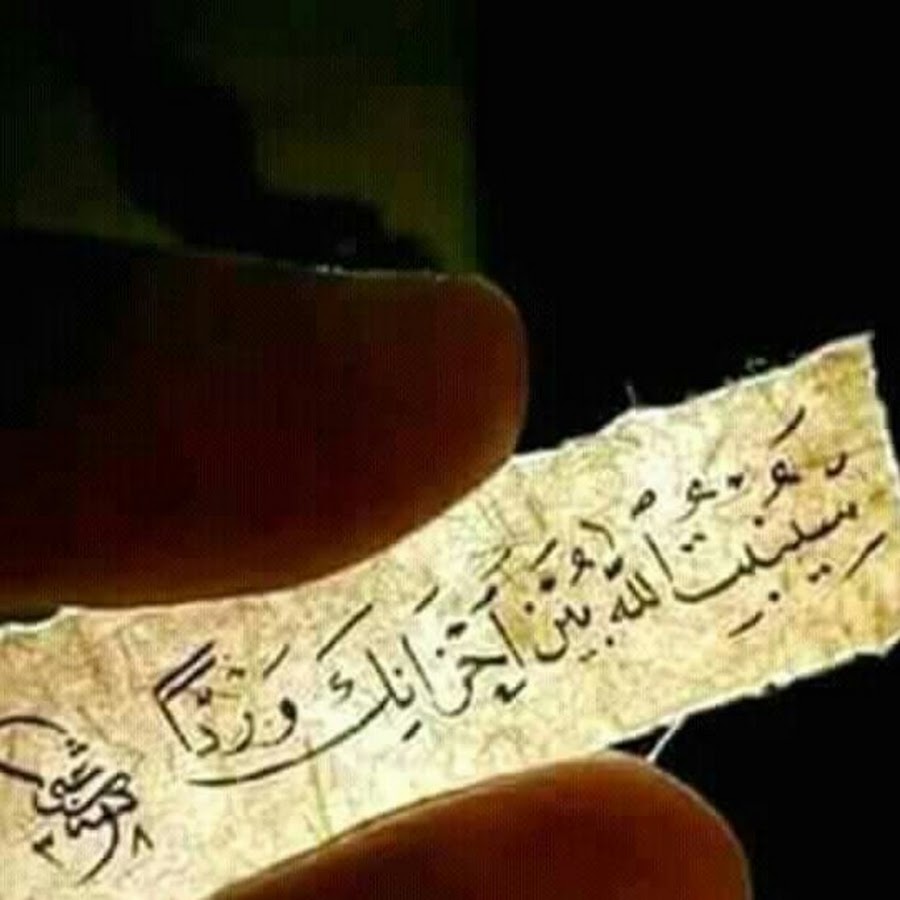 سَيُنبِتُ اللّٰهُ بَيْنَ أَحْزَانِكَ وَرْدًا
٣ ٨